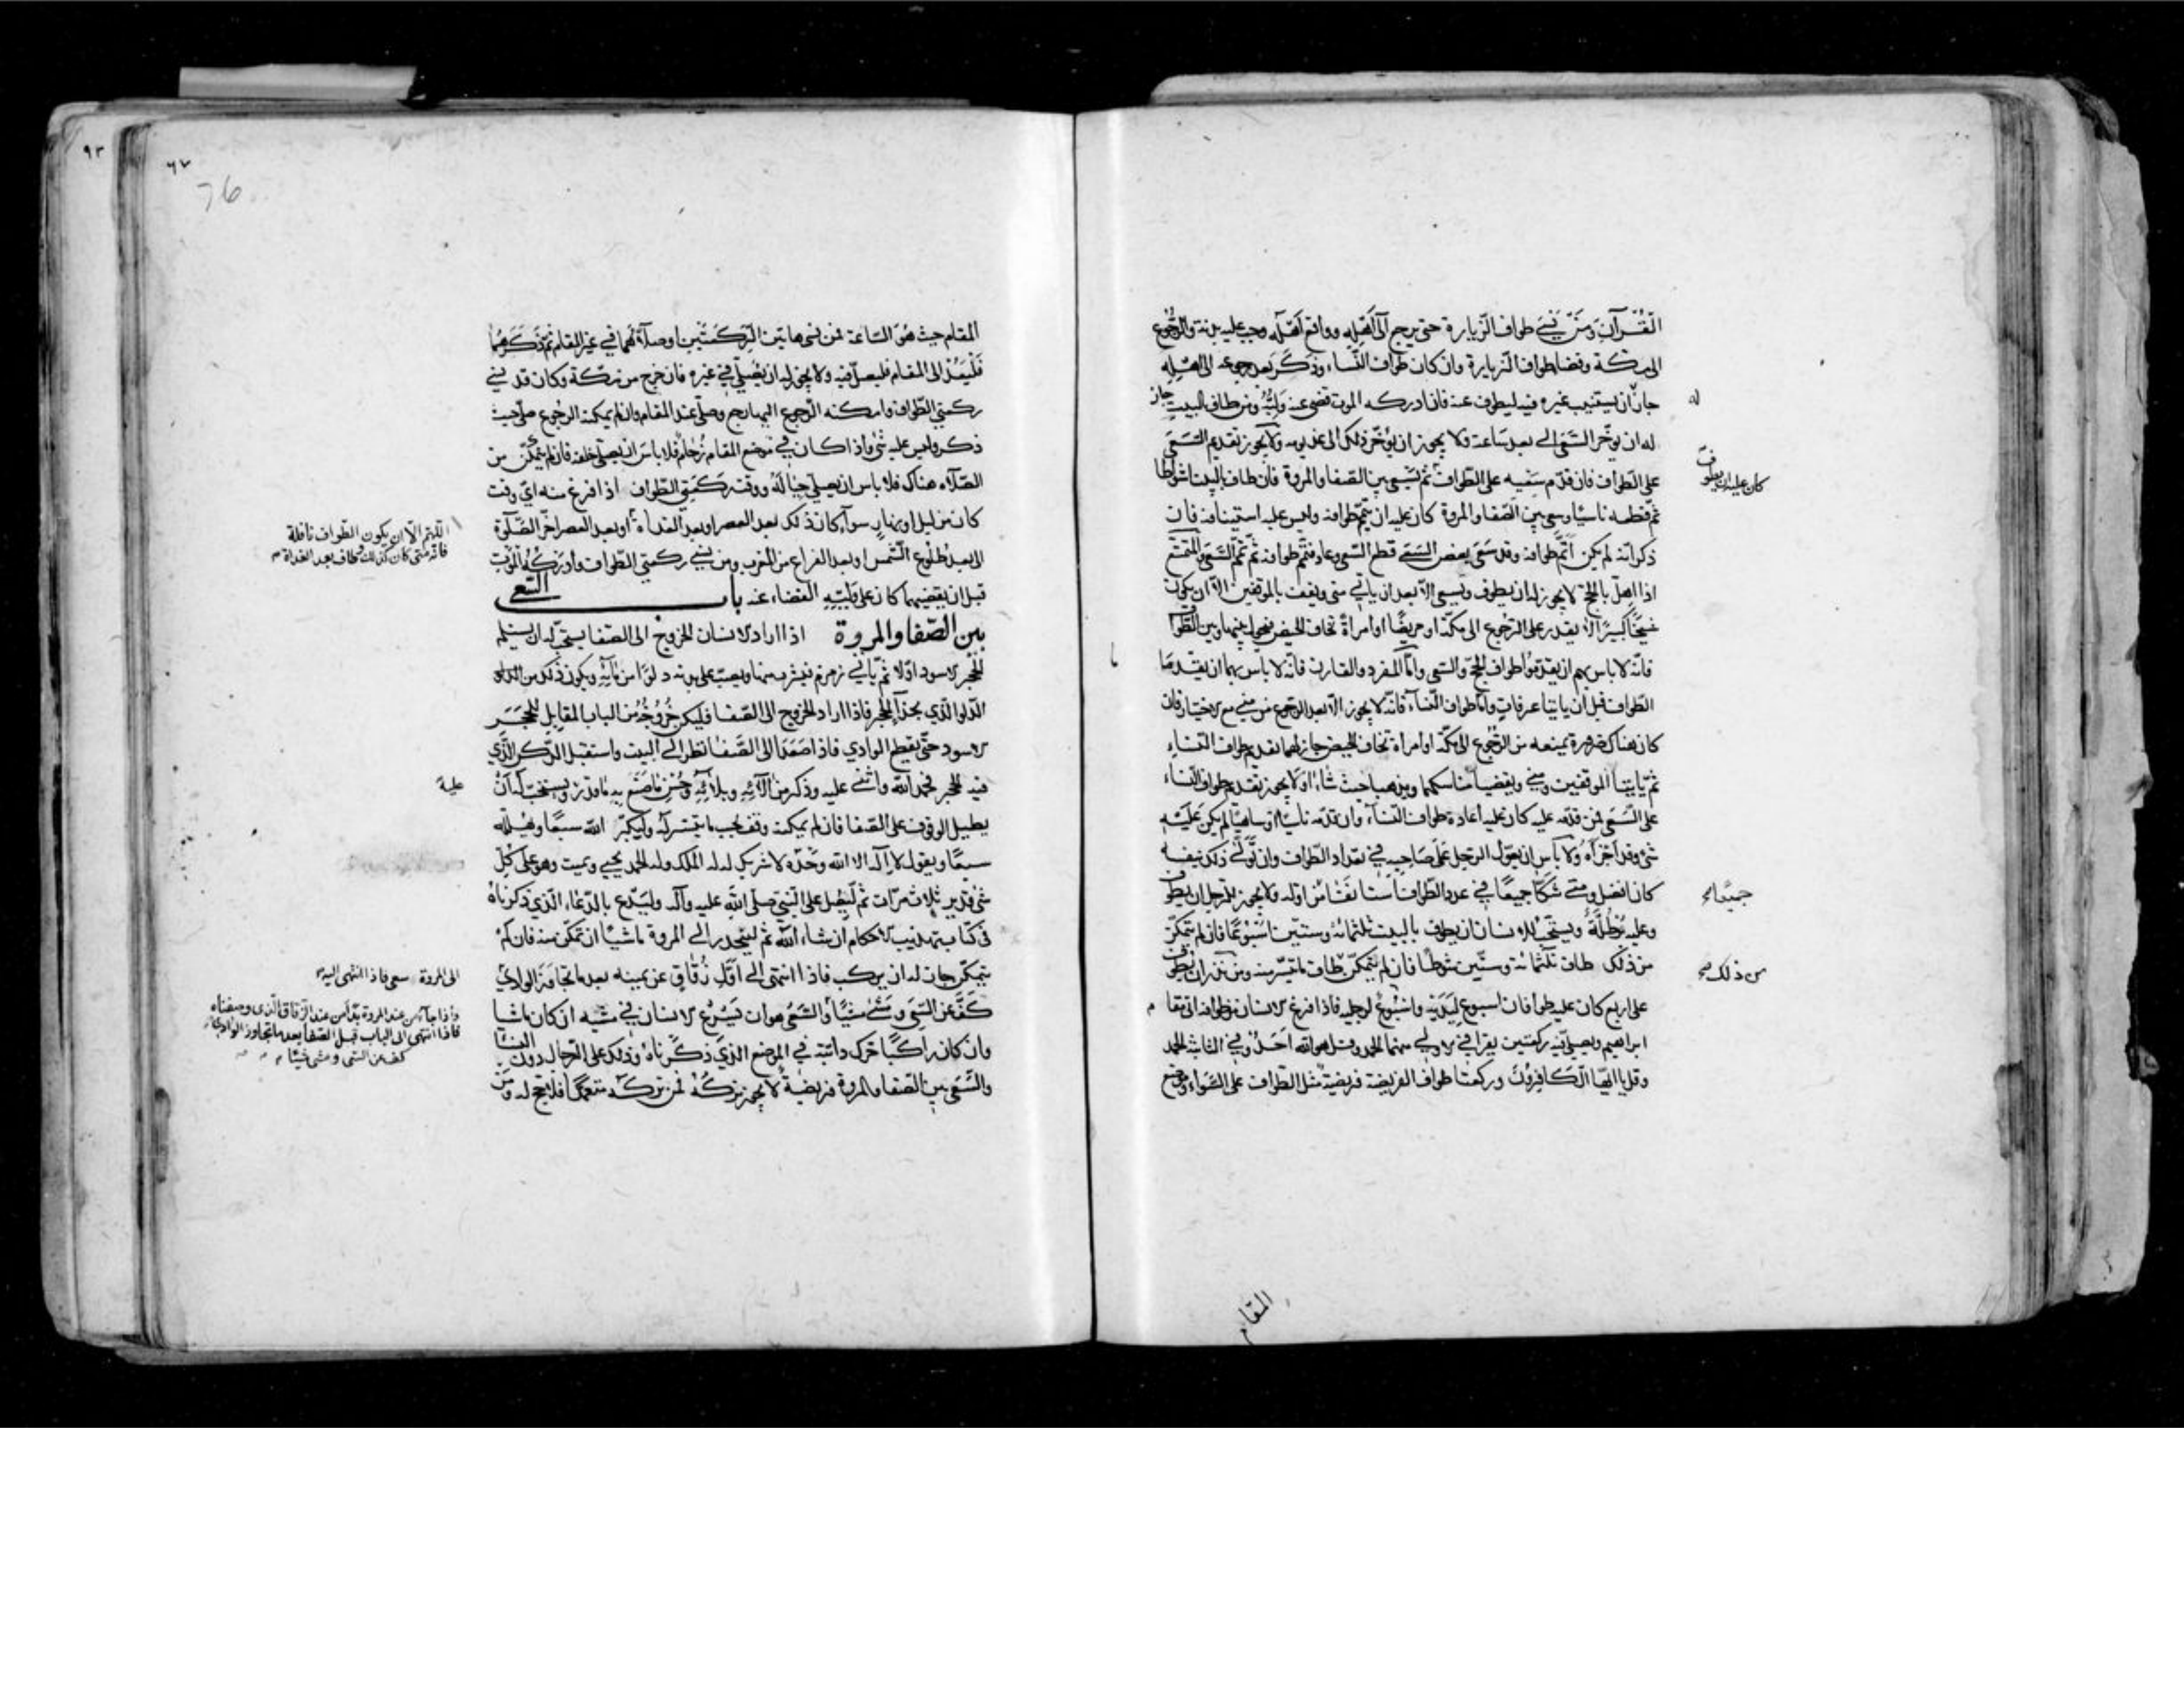 القُرآن ومن نسي طواف الزيارة حتى يرجع الى اهله وواقع اهله وجب عليه بدنة والرجوع
الى مكة وقضا طواف الزيارة وان كان طواف النساء وذكر بعد رجوعه الى اهله
جاز ان يستنيب غيره فيه ليطوف عنه فان ادركه الموت قضى عنه وليه ومن طاف بالبيت جاز
له
له ان يوخّر السعى الى بعد ساعة ولا يجوز ان يؤخّر ذلك الى غد يومه ولا يجوز تقديم السَعى
على الطواف فان قدّم سعيه على الطواف ثم يسعى بين الصفا والمروة فان طاف بالبيت اشواطا
كان عليه ان يطوف
ثم قطعه ناسيا وسعى بين الصفا والمروة كان عليه ان يتمّم طوافه وليس عليه استينافه فان
ذكر انّه لم يكن اتمّ طوافه وقد سَعَى بعض السَعى قطع السّعى وعاد فتمّم طوافه ثم تمّم السَعى والمتمتع
اذا اهلّ بالحج لا يجوز له ان يطوف ويسعى الّا بعد ان ياتي منى ويقف بالموقفين الّا ان يكون
شيخًا كبيرًا لا يقدر على الرجوع الى مكة او مريضًا او امراةً تخاف الحيض فيحول بينها وبين الطواف
فانّه لا باس بهم ان يقدّموا طواف الحج والسّعى وامّا المفرد والقارن فانّه لا باس بهما ان يقدّما
الطواف قبل ان ياتيا عرفات وامّا طواف النساء فانّه لا يجوز الّا بعد الرجوع من منى مع الاختيار فان
كان هناك ضرورة تمنعه من الرجوع الى مكة او امراة تخاف الحيض جاز لهما تقديم طواف النساء
ثم ياتيا الموقفين ومنى ويقضيا مناسكهما ويذهبا حيث شاءا ولا يجوز تقديم طواف النساء
على السَعى فمن قدّمه عليه كان عليه اعادة طواف النساء وان قدّمه ناسيا او ساهيا لم يكن عليه
شئ وقد اجزاه ولا باس ان يعوّل الرجل على صاحبه في تعداد الطواف وان تولّى ذلك بنفسه
كان افضل ومتى شكّا جميعًا في عدد الطواف استانفا من اوله ولا يجوز للرجل ان يطوف
جميعا صح
وعليه بُرطُلّة ويستحب للانسان ان يطوف بالبيت ثلثمائه وستين اسبوعًا فان لم يتمكّن
من ذلك طاف ثلثمائة وستّين شوطا فان لم يتمكّن طاف ما تيسّر منه ومن نذر ان يطوف
من ذلك صح
على اربع كان عليه طوافان اسبوع ليديه واسبوع لرجليه فاذا فرغ الانسان من طوافه اتى مقام
ابراهيم ويصلي فيه ركعتين يقرا في الاولى منهما الحمد وقل هو الله احد وفي الثانية الحمد
وقل يا ايها الكافرون وركعتا طواف الفريضة فريضة مثل الطواف على السواء وموضع
المقام
٩٣
٦٧
76
المقام حيث هو الساعة فمن نسى هاتين الركعتين او صلّاهما في غير المقام ثم ذكرهما
فليعُد الى المقام فليصلّ فيه ولا يجوز له ان يصلّي في غيره فان خرج من مكة وكان قد نسي
ركعتي الطواف وامكنه الرجوع اليها رجع وصلّى عند المقام وان لم يمكنه الرجوع صلّى حيث
ذكر وليس عليه شئ واذا كان في موضع المقام زحام فلا باس ان يصلي خلفه فان لم يتمكّن من
الصلاة هناك فلا باس ان يصلي حياله ووقت ركعتي الطواف اذا فرغ منه ايّ وقت
كان من ليل او نهار سواء كان ذلك بعد العصر او بعد الغداة او بعد العصر اخّر الصلوة
اللّهم الّا ان يكون الطواف نافلة
فانه متى كان كذلك وطاف بعد الغداة
الى بعد طلوع الشمس او بعد الفراغ من المغرب ومن نسي ركعتي الطواف وادركه الموت
قبل ان يقضيهما كان على وليّه القضاء عنه باب السّعي
بين الصّفا والمروة اذا اراد الانسان الخروج الى الصفا يستحبّ له ان يستلم
الحجر الاسود اوّلا ثم يأتي زمزم فيشرب منها ويصبّ على بدنه دلوًا من مائه ويكون ذلك من الدلو
الدلو الّذي بحذاء الحجر فاذا اراد الخروج الى الصفا فليكن خروجُه من الباب المقابل للحَجَر
الاسود حتّى يقطع الوادي فاذا صَعَد الى الصّفا نظر الى البيت واستقبل الركن الّذي
فيه الحجر فحمد الله واثنى عليه وذكر من آلائه وبلائه وحُسن ما صنع به ما قدر ويستحبّ له ان
عليه
يطيل الوقوف على الصّفا فان لم يمكنه وقف بحسب ما تيسّر له وليكبّر الله سبعًا ويهلله
سبعًا ويقول لا اله الا الله وحده لا شريك له له الملك وله الحمد يحيي ويميت وهو على كلّ
شئ قدير ثلاث مرّات ثم ليصلّ على النّبي صلى الله عليه وآله وليدع بالدّعاء الّذي ذكرناه
في كتاب تهذيب الاحكام ان شاء الله ثم لينحدر الى المروة ماشيًا ان تمكّن منه فان لم
يتمكّن جاز له ان يركب فاذا انتهى الى اوّل زُقاق عن يمينه بعد ما تجاوز الوادي
الى المروة سعى فاذا انتهى اليه
كفّ عن السَعى ومشى مشيًا والسَعى هو ان يسرع الانسان في مشيه ان كان ماشيا
واذا جاء من عند المروة بدأ من عند الزقاق الّذي وصفناه
فاذا انتهى الى الباب قبل الصفا بعد ما تجاوز الوادي
كف عن السّعى ومشى مشيًا
وان كان راكبًا حرك دابّته في الموضع الذي ذكرناه وذلك على الرجال دون النساء
والسّعى بين الصّفا والمروة فريضة لا يجوز تركه فمن تركه متعمّدا فلا حج له ومن